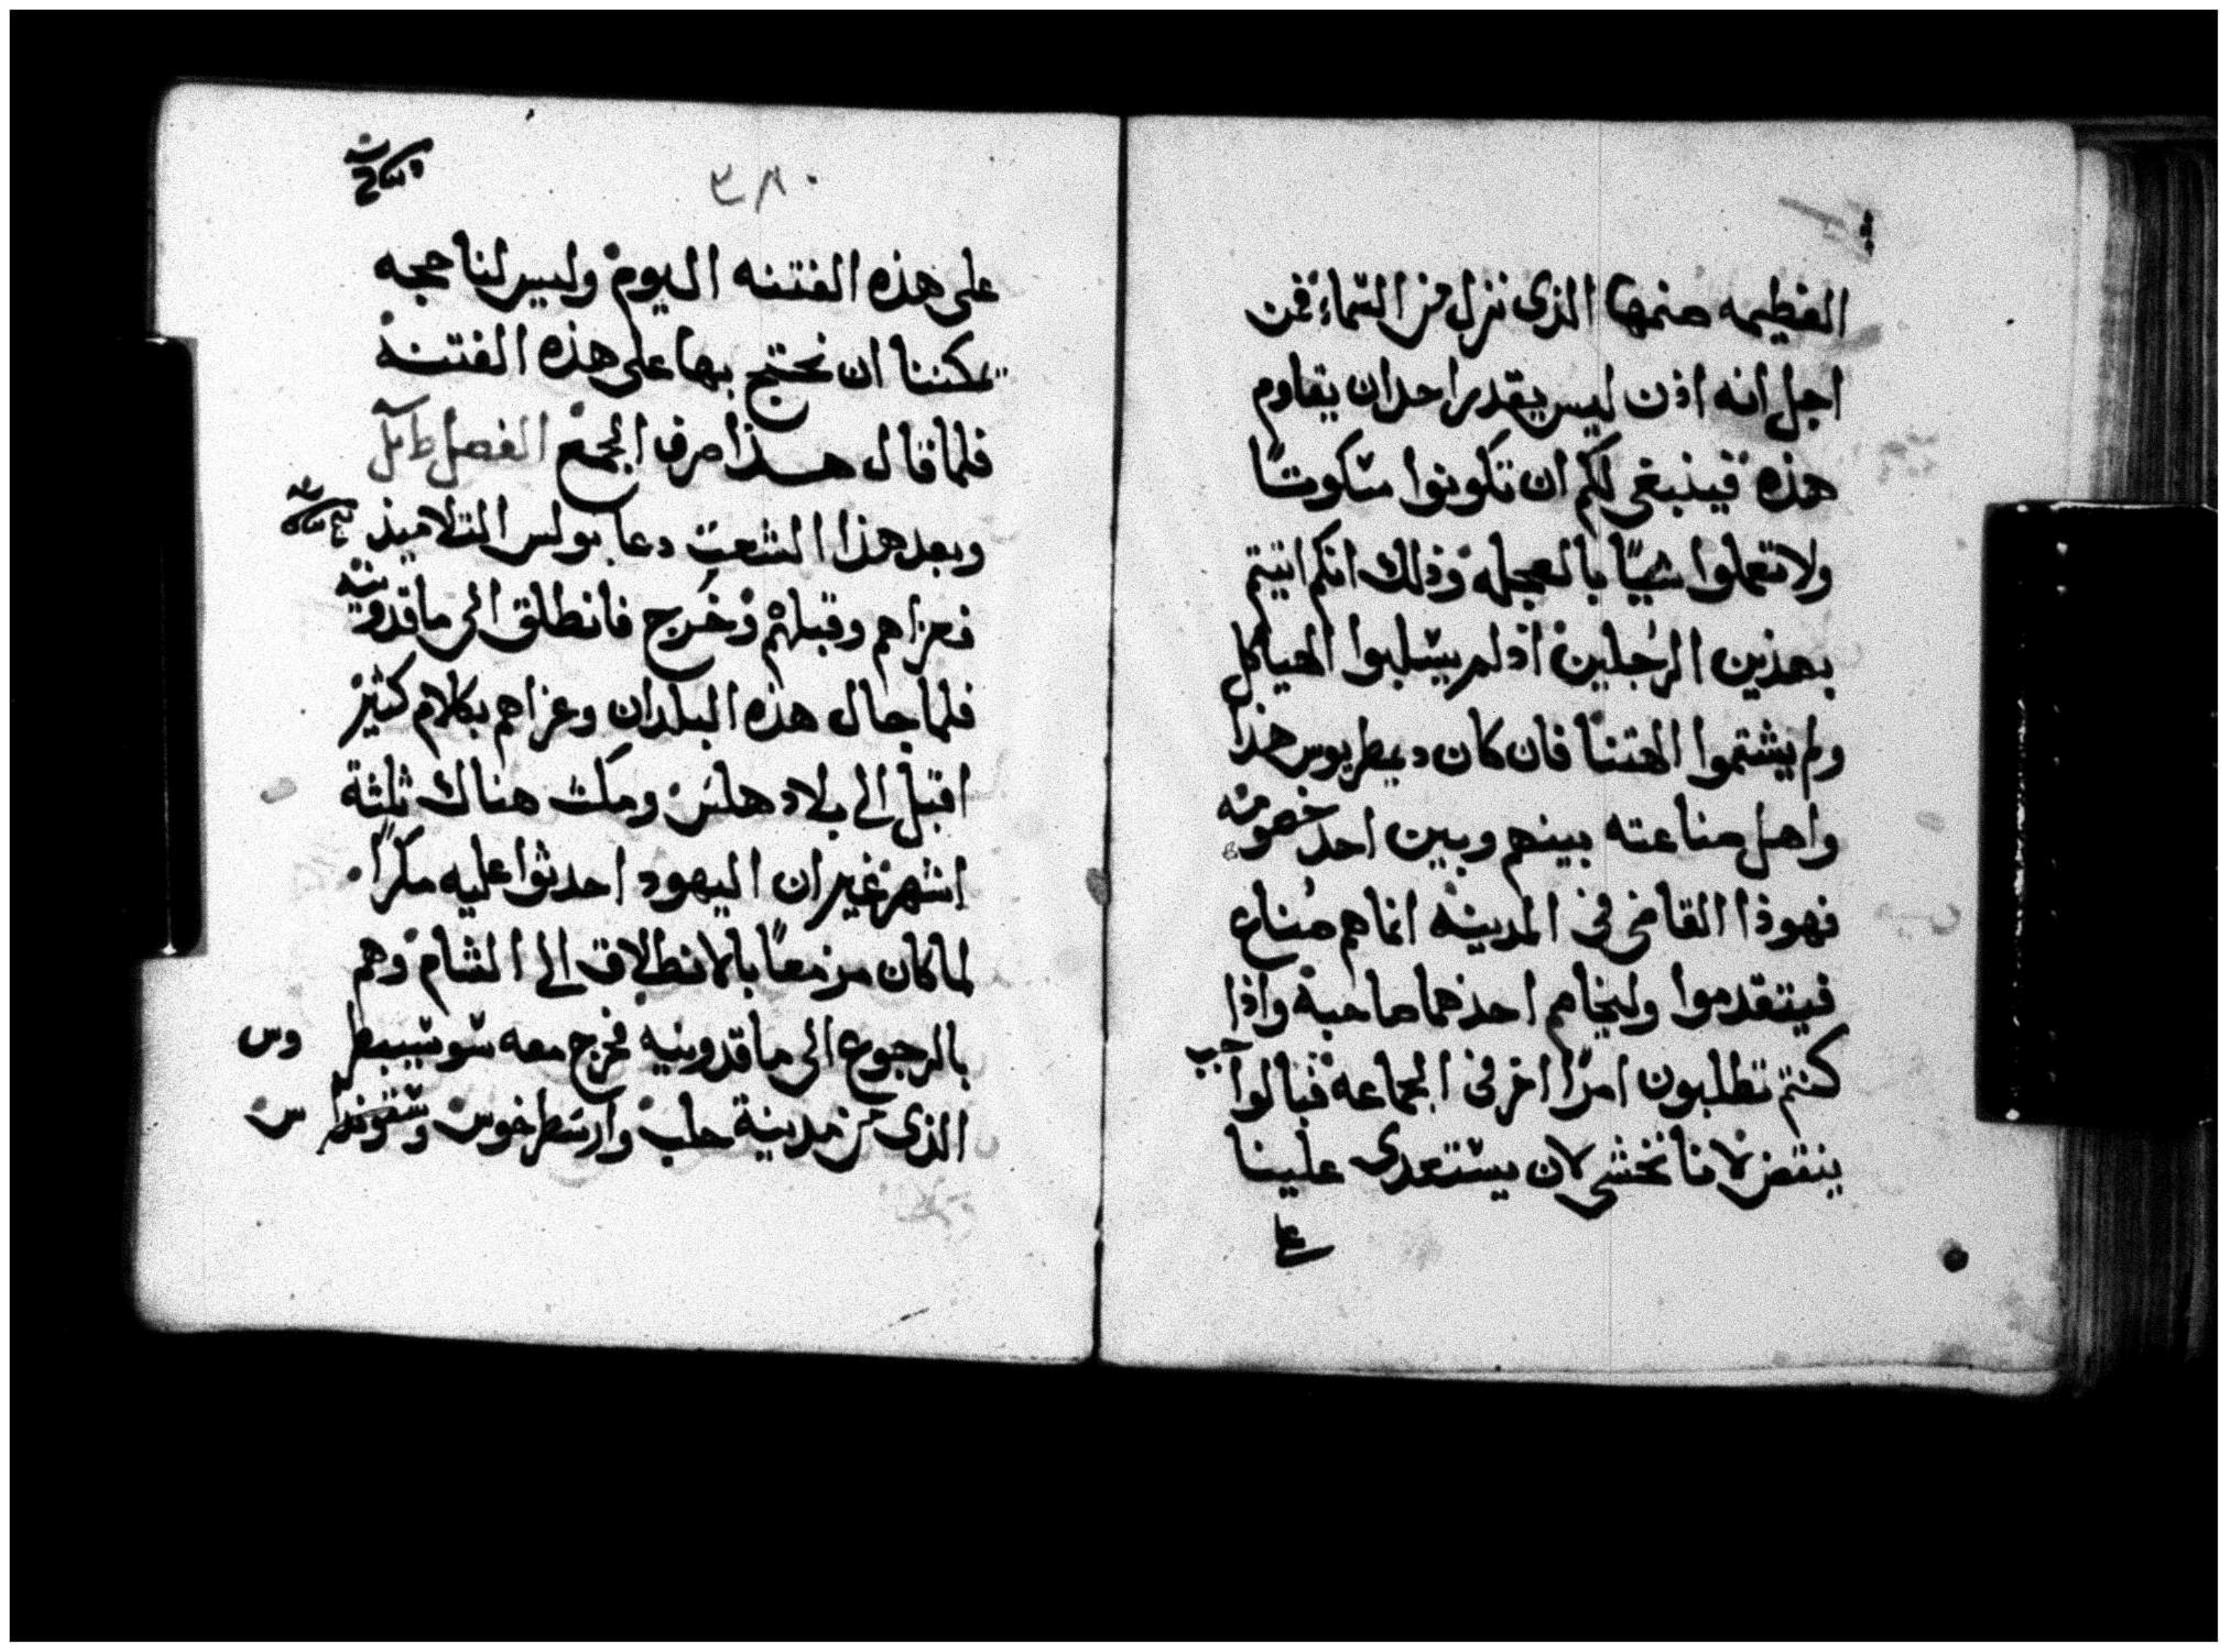 العظيمه صنمها الذى نزل من السماء فمن
اجل انه اذن ليس يقدر احد ان يقاوم
هذه فينبغى لكم ان تكونوا سكوتا
ولا تعملوا شيئًا بالعجله وذلك انكم اتيتم
بهذين الرجلين اذ لم يسلبوا الهياكل
ولم يشتموا الهتنا فان كان ديمطريوس هذا
واهل صناعته بينهم وبين احد خصومه
فهوذا القاضى فى المدينه انما هم صناع
فيتقدموا وليخاصم احدهما صاحبه واذا
كنتم تطلبون امرًا اخر فى الجماعه
ينتقض لاننا نخشى لان يستعدى علينا
على
على هذه الفتنه اليوم وليس لنا حجه
يمكننا ان نحتج بها على هذه الفتنه
فلما قال هذا صرف الجمع الفصل
وبعد هذا الشعب دعا بولس التلاميذ
فعزاهم وقبلهم وخرج فانطلق الى ماقدونيه
فلما جال هذه البلدان وعزاهم بكلام كثير
اقبل الى بلاد هلس ومكث هناك ثلثة
اشهر غير ان اليهود احدثوا عليه مكرًا
لما كان مزمعًا بالانطلاق الى الشام وهم
بالرجوع الى ماقدونيه فخرج معه سوسيبطر وس
الذى من مدينة حلب وارسطرخوس وسقوندا س